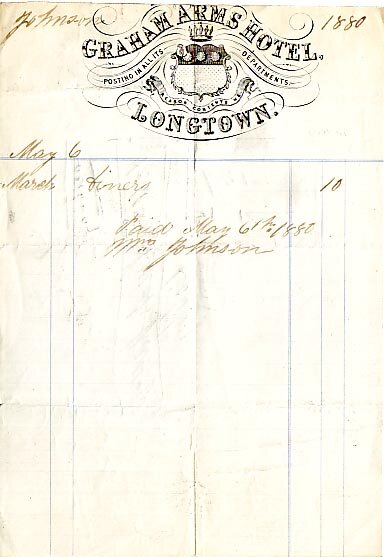 Johnson 1880
GRAHAM ARMS HOTEL,
POSTING IN ALL ITS DEPARTMENTS.
LONGTOWN.
May 6
March diners 10
Paid May 6th 1880
Mrs Johnson